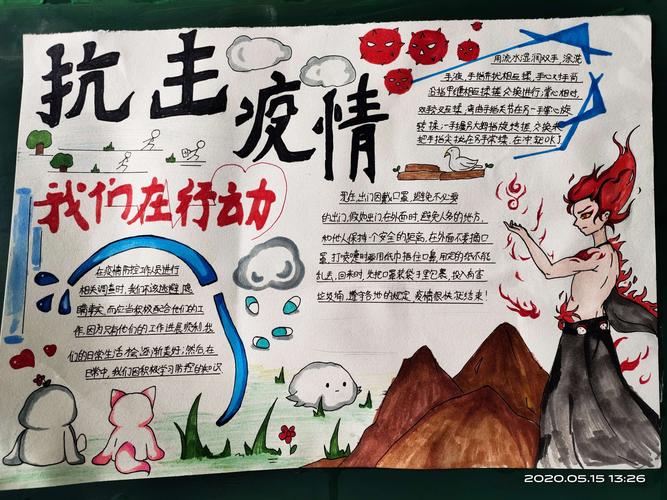 抗击
疫情
我们在行动
用流水湿润双手,涂洗
手液,手指并拢相互揉,手心对手背
沿指甲缝相互揉搓交换进行,掌心相对,
双手交叉互揉,弯曲手指关节在另一手掌心旋
转揉,一手握另大拇指旋转搓交换来
把手指尖放在另手常揉,在冲就OK了
现在,出门因戴口罩,避免不必要
的出门,假如出门,在外面时,避免人多的地方,
和他人保持个安全的距离,在外面不要摘口
罩,打喷嚏时要用纸巾捂住口鼻,用完的纸不能
乱丢,回来时,先把口罩装袋子里包裹,投入有害
垃圾桶,遵守各地的规定,疫情很快就结束!
在疫情防控工作人员进行
相关调查时,我们不该逃避,隐
瞒事实,而应当积极配合他们的工
作,因为只有他们的工作进展顺利,我
们的日常生活才会逐渐美好;然后在
日常中,我们因积极学习防控的知识
2020.05.15 13:26